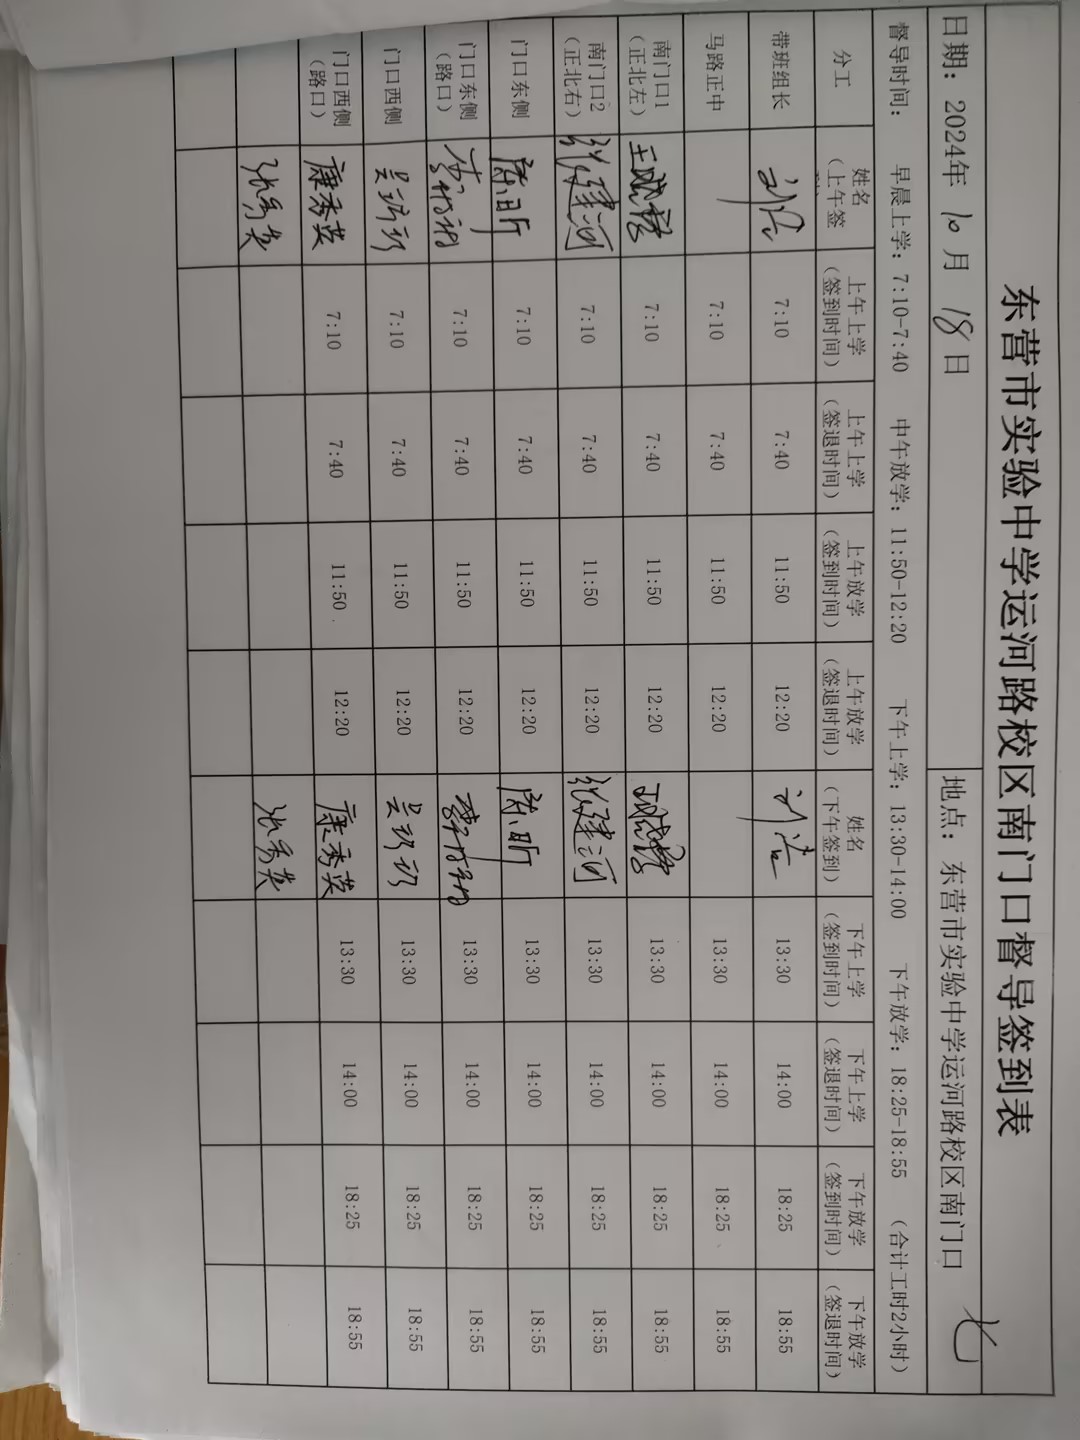 东营市实验中学运河路校区南门口督导签到表
日期：2024年 10 月 18 日 地点：东营市实验中学运河路校区南门口 七
督导时间： 早晨上学：7:10-7:40 中午放学：11:50-12:20 下午上学：13:30-14:00 下午放学：18:25-18:55 （合计工时2小时）
分工 姓名（上午签 上午上学（签到时间） 上午上学（签退时间） 上午放学（签到时间） 上午放学（签退时间） 姓名（下午签到） 下午上学（签到时间） 下午上学（签退时间） 下午放学（签到时间） 下午放学（签退时间）
带班组长 刘 7:10 7:40 11:50 12:20 刘 13:30 14:00 18:25 18:55
马路正中 7:10 7:40 11:50 12:20 13:30 14:00 18:25 18:55
南门口1（正北左） 7:10 7:40 11:50 12:20 13:30 14:00 18:25 18:55
南门口2（正北右） 张建河 7:10 7:40 11:50 12:20 张建河 13:30 14:00 18:25 18:55
门口东侧 陈昕 7:10 7:40 11:50 12:20 陈昕 13:30 14:00 18:25 18:55
门口东侧（路口） 李 7:10 7:40 11:50 12:20 李 13:30 14:00 18:25 18:55
门口西侧 吴 7:10 7:40 11:50 12:20 吴 13:30 14:00 18:25 18:55
门口西侧（路口） 康秀英 7:10 7:40 11:50 12:20 康秀英 13:30 14:00 18:25 18:55
张秀 张秀